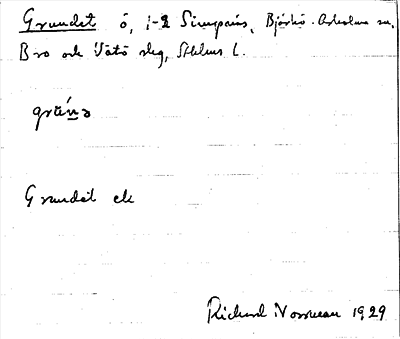 Grundet ö, 1-2 Simpnäs, Björkö-Arholma sn,
Bro och Vätö slg, Sthlms l.
grün̲ə
Grundet ek
Richard Norrman 1929